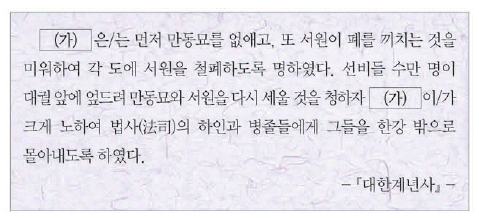 (가) 은/는 먼저 만동묘를 없애고, 또 서원이 폐를 끼치는 것을
미워하여 각 도에 서원을 철폐하도록 명하였다. 선비들 수만 명이
대궐 앞에 엎드려 만동묘와 서원을 다시 세울 것을 청하자 (가) 이/가
크게 노하여 법사(法司)의 하인과 병졸들에게 그들을 한강 밖으로
몰아내도록 하였다.
- 『대한계년사』 -